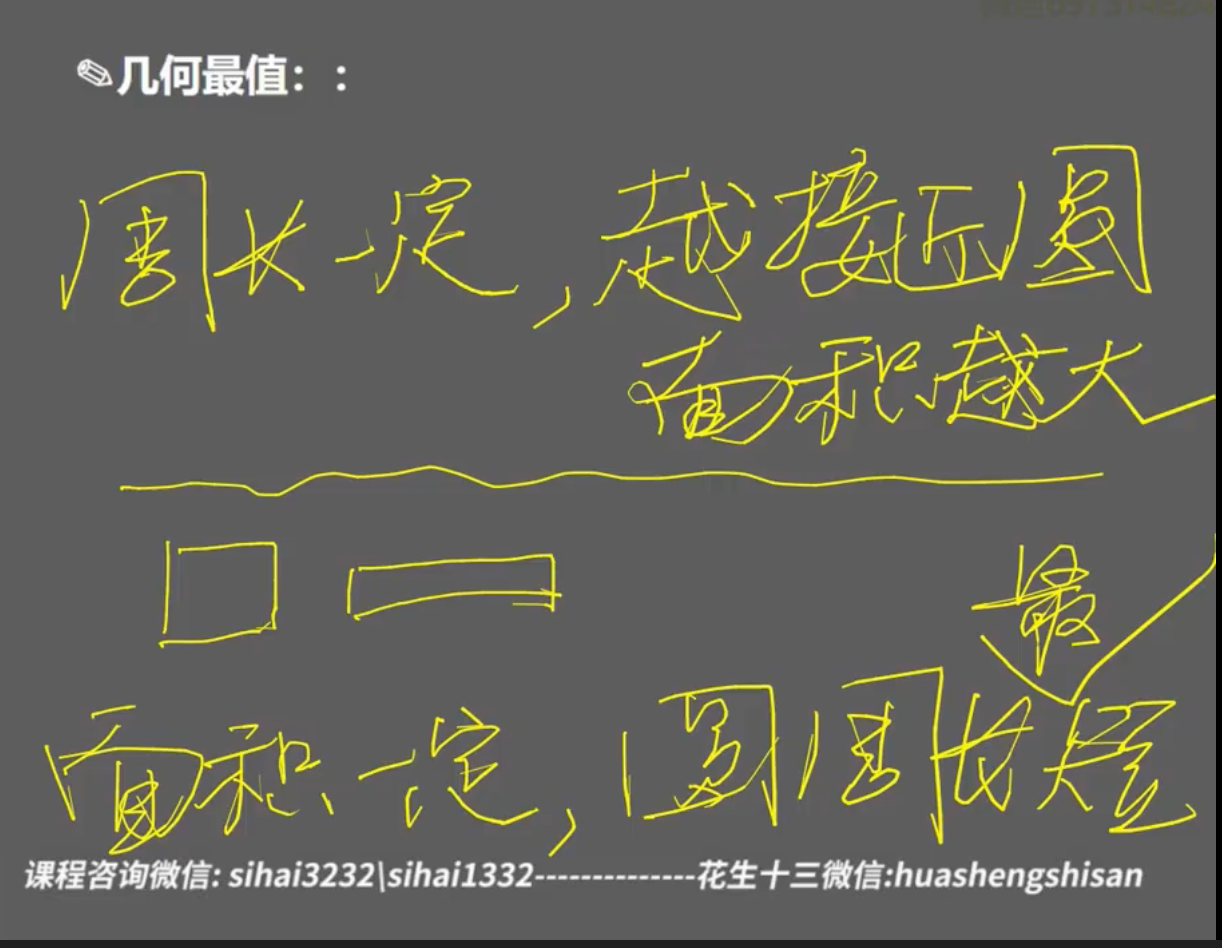 几何最值：：
周长一定，越接近圆
面积越大
最
面积一定，圆周长短
课程咨询微信: sihai3232\sihai1332--------------花生十三微信:huashengshisan